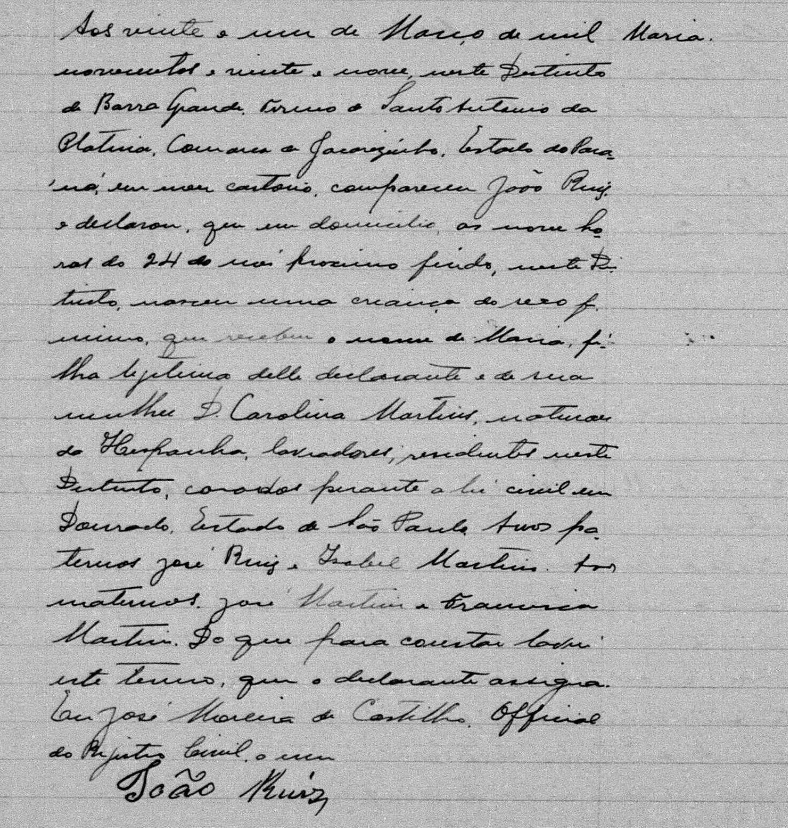 Aos vinte e um de Março de mil Maria.
novecentos e vinte e nove, neste Districto
de Barra Grande, termo de Santo Antonio da
Platina, Comarca de Jacarezinho, Estado do Para-
ná, em meu cartorio, compareceu João Ruiz
e declarou, que em domicilio, as nove ho-
ras do 24 do próximo findo, neste Dis-
tricto, nasceu uma criança do sexo fe-
minino, que recebeu o nome de Maria, fi-
lha legitima delle declarante e de sua
mulher D. Carolina Martins, naturaes
da Hespanha, lavradores, residentes neste
Districto, casados perante a lei civil em
Dourado, Estado de São Paulo. Avos pa-
ternos José Ruiz e Isabel Martins. Avos
maternos, José Martins e Francisca
Martins. Do que para constar lavrei
este termo, que o declarante assigna.
Eu José Moreira de Castilho, Official
do Registro Civil, o
João Ruiz